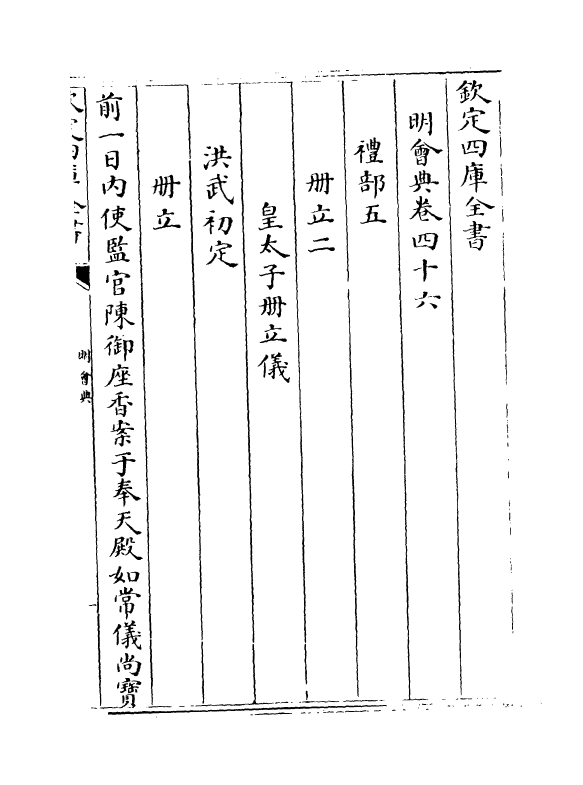 欽定四庫全書
明會典卷四十六
禮部五
册立二
皇太子册立儀
洪武初定
册立
前一日内使監官陳御座香案于奉天殿如常儀尚寶
明會典
一